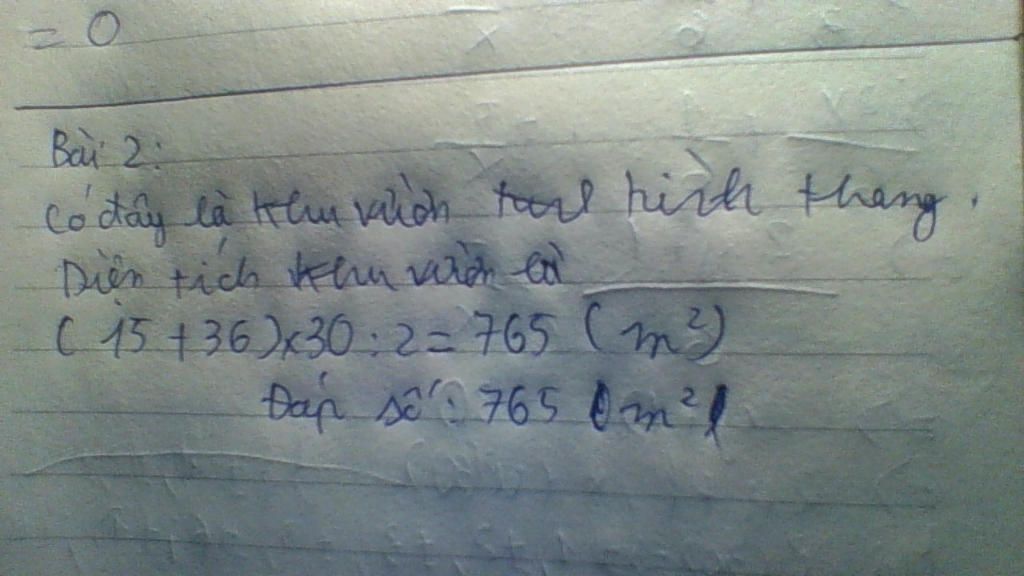 = 0
Bài 2:
Có đây là khu vườn hình thang.
Diện tích khu vườn là
(15 + 36) x 30 : 2 = 765 (m²)
Đáp số: 765 (m²)